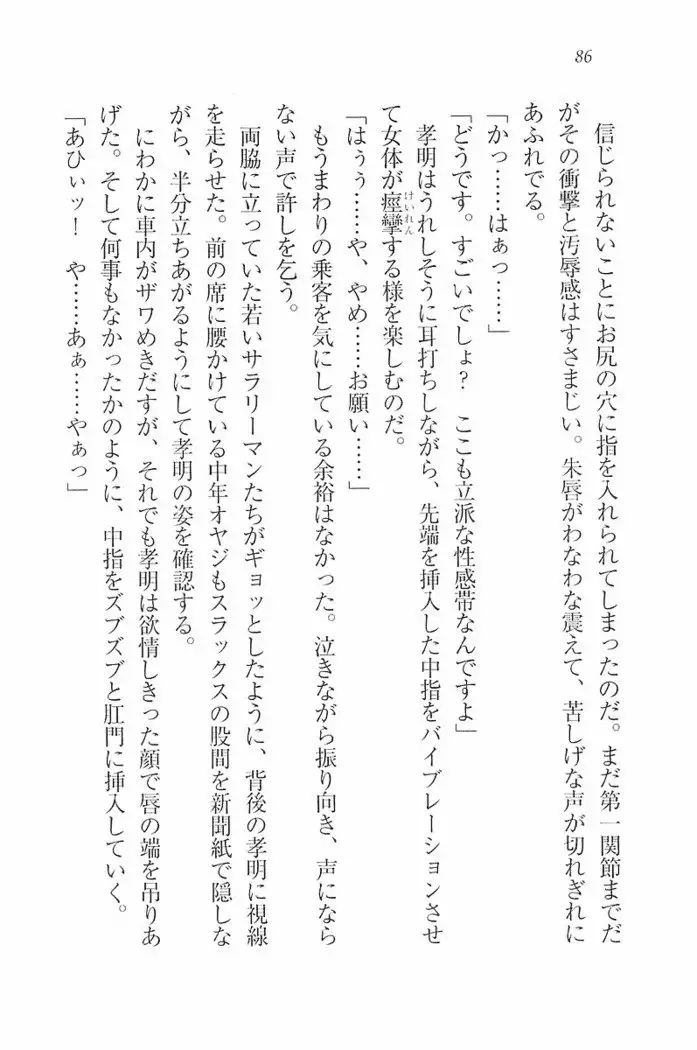 86
信じられないことにお尻の穴に指を入れられてしまったのだ。まだ第一関節までだ
がその衝撃と汚辱感はすさまじい。朱唇がわなわな震えて、苦しげな声が切れぎれに
あふれでる。
「かっ……はぁっ……」
「どうです。すごいでしょ？　ここも立派な性感帯なんですよ」
孝明はうれしそうに耳打ちしながら、先端を挿入した中指をバイブレーションさせ
て女体が痙攣けいれんする様を楽しむのだ。
「はぅぅ……や、やめ……お願い……」
もうまわりの乗客を気にしている余裕はなかった。泣きながら振り向き、声になら
ない声で許しを乞う。
両脇に立っていた若いサラリーマンたちがギョッとしたように、背後の孝明に視線
を走らせた。前の席に腰かけている中年オヤジもスラックスの股間を新聞紙で隠しな
がら、半分立ちあがるようにして孝明の姿を確認する。
にわかに車内がザワめきだすが、それでも孝明は欲情しきった顔で唇の端を吊りあ
げた。そして何事もなかったかのように、中指をズブズブと肛門に挿入していく。
「あひぃッ！　や……あぁ……やぁっ」